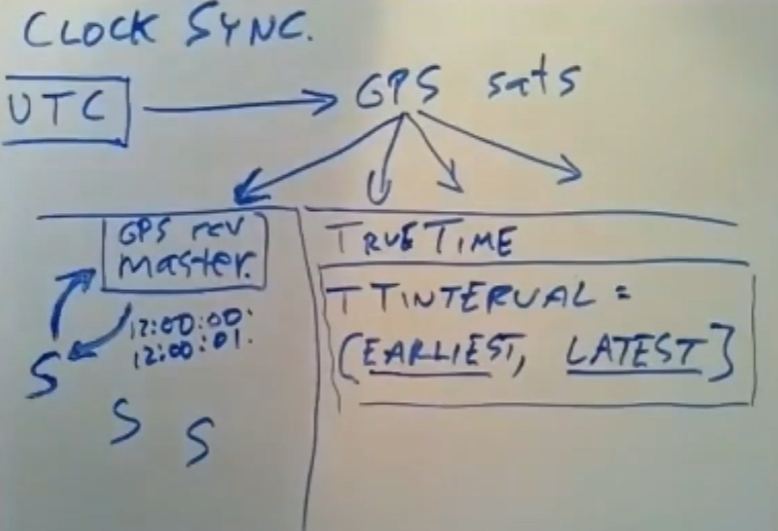 CLOCK SYNC.
UTC
GPS sats
GPS rcv
master.
12:00:00:
12:00:01.
S
S
S
TRUE TIME
TTINTERVAL =
(EARLIEST, LATEST]